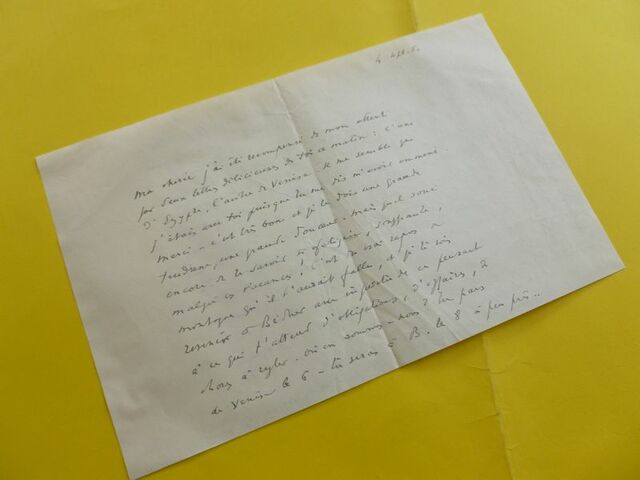 4 sept. 
Ma chérie j'ai été récompensé de mon attente
par deux lettres délicieuses de toi ce matin : l'une
d'Egypte, l'autre de Venise. Il me semble que
j'étais avec toi puisque tu me dis m'avoir emmené.
merci - c'est très bon et je te dois une grande
tendresse, une grande douceur. mais quel souci
encore de te savoir si fatiguée, souffrante,
malgré ces vacances ! c'est un vrai repos à
montagne qu'il t'aurait fallu, et je te vois
revenir à B avec inquiétude en pensant
à ce qui t'attend d'obligations, d'affaires, de
choses à régler. Où en sommes-nous ? Tu pars
de Venise le 6 - tu seras à B. le 8 à peu près..